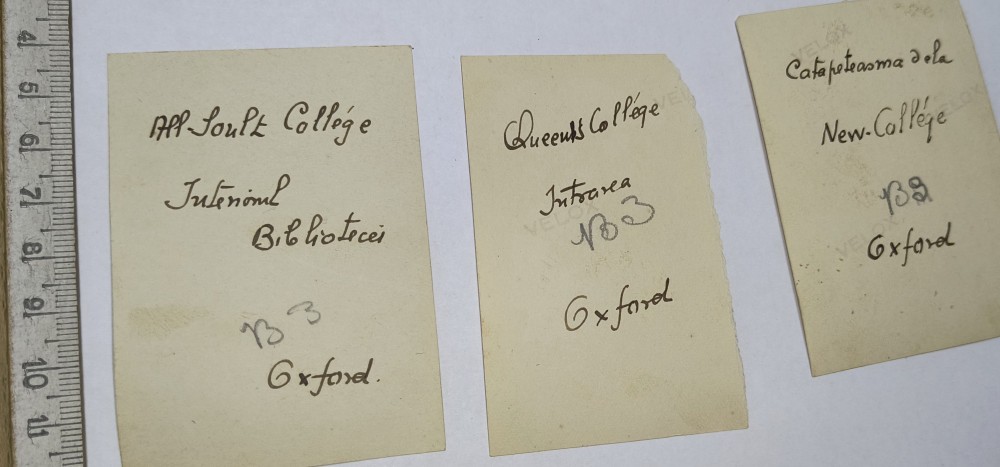 4
5
6
7
8
9
10
11
All-Soul's Collége
Interiorul
Bibliotecei
B 3
Oxford.
Queen's Collége
Intrarea
B 3
VELOX
Oxford
VELOX
Catapeteasma dela
New-Collége
VELOX
B2
VELOX
Oxford